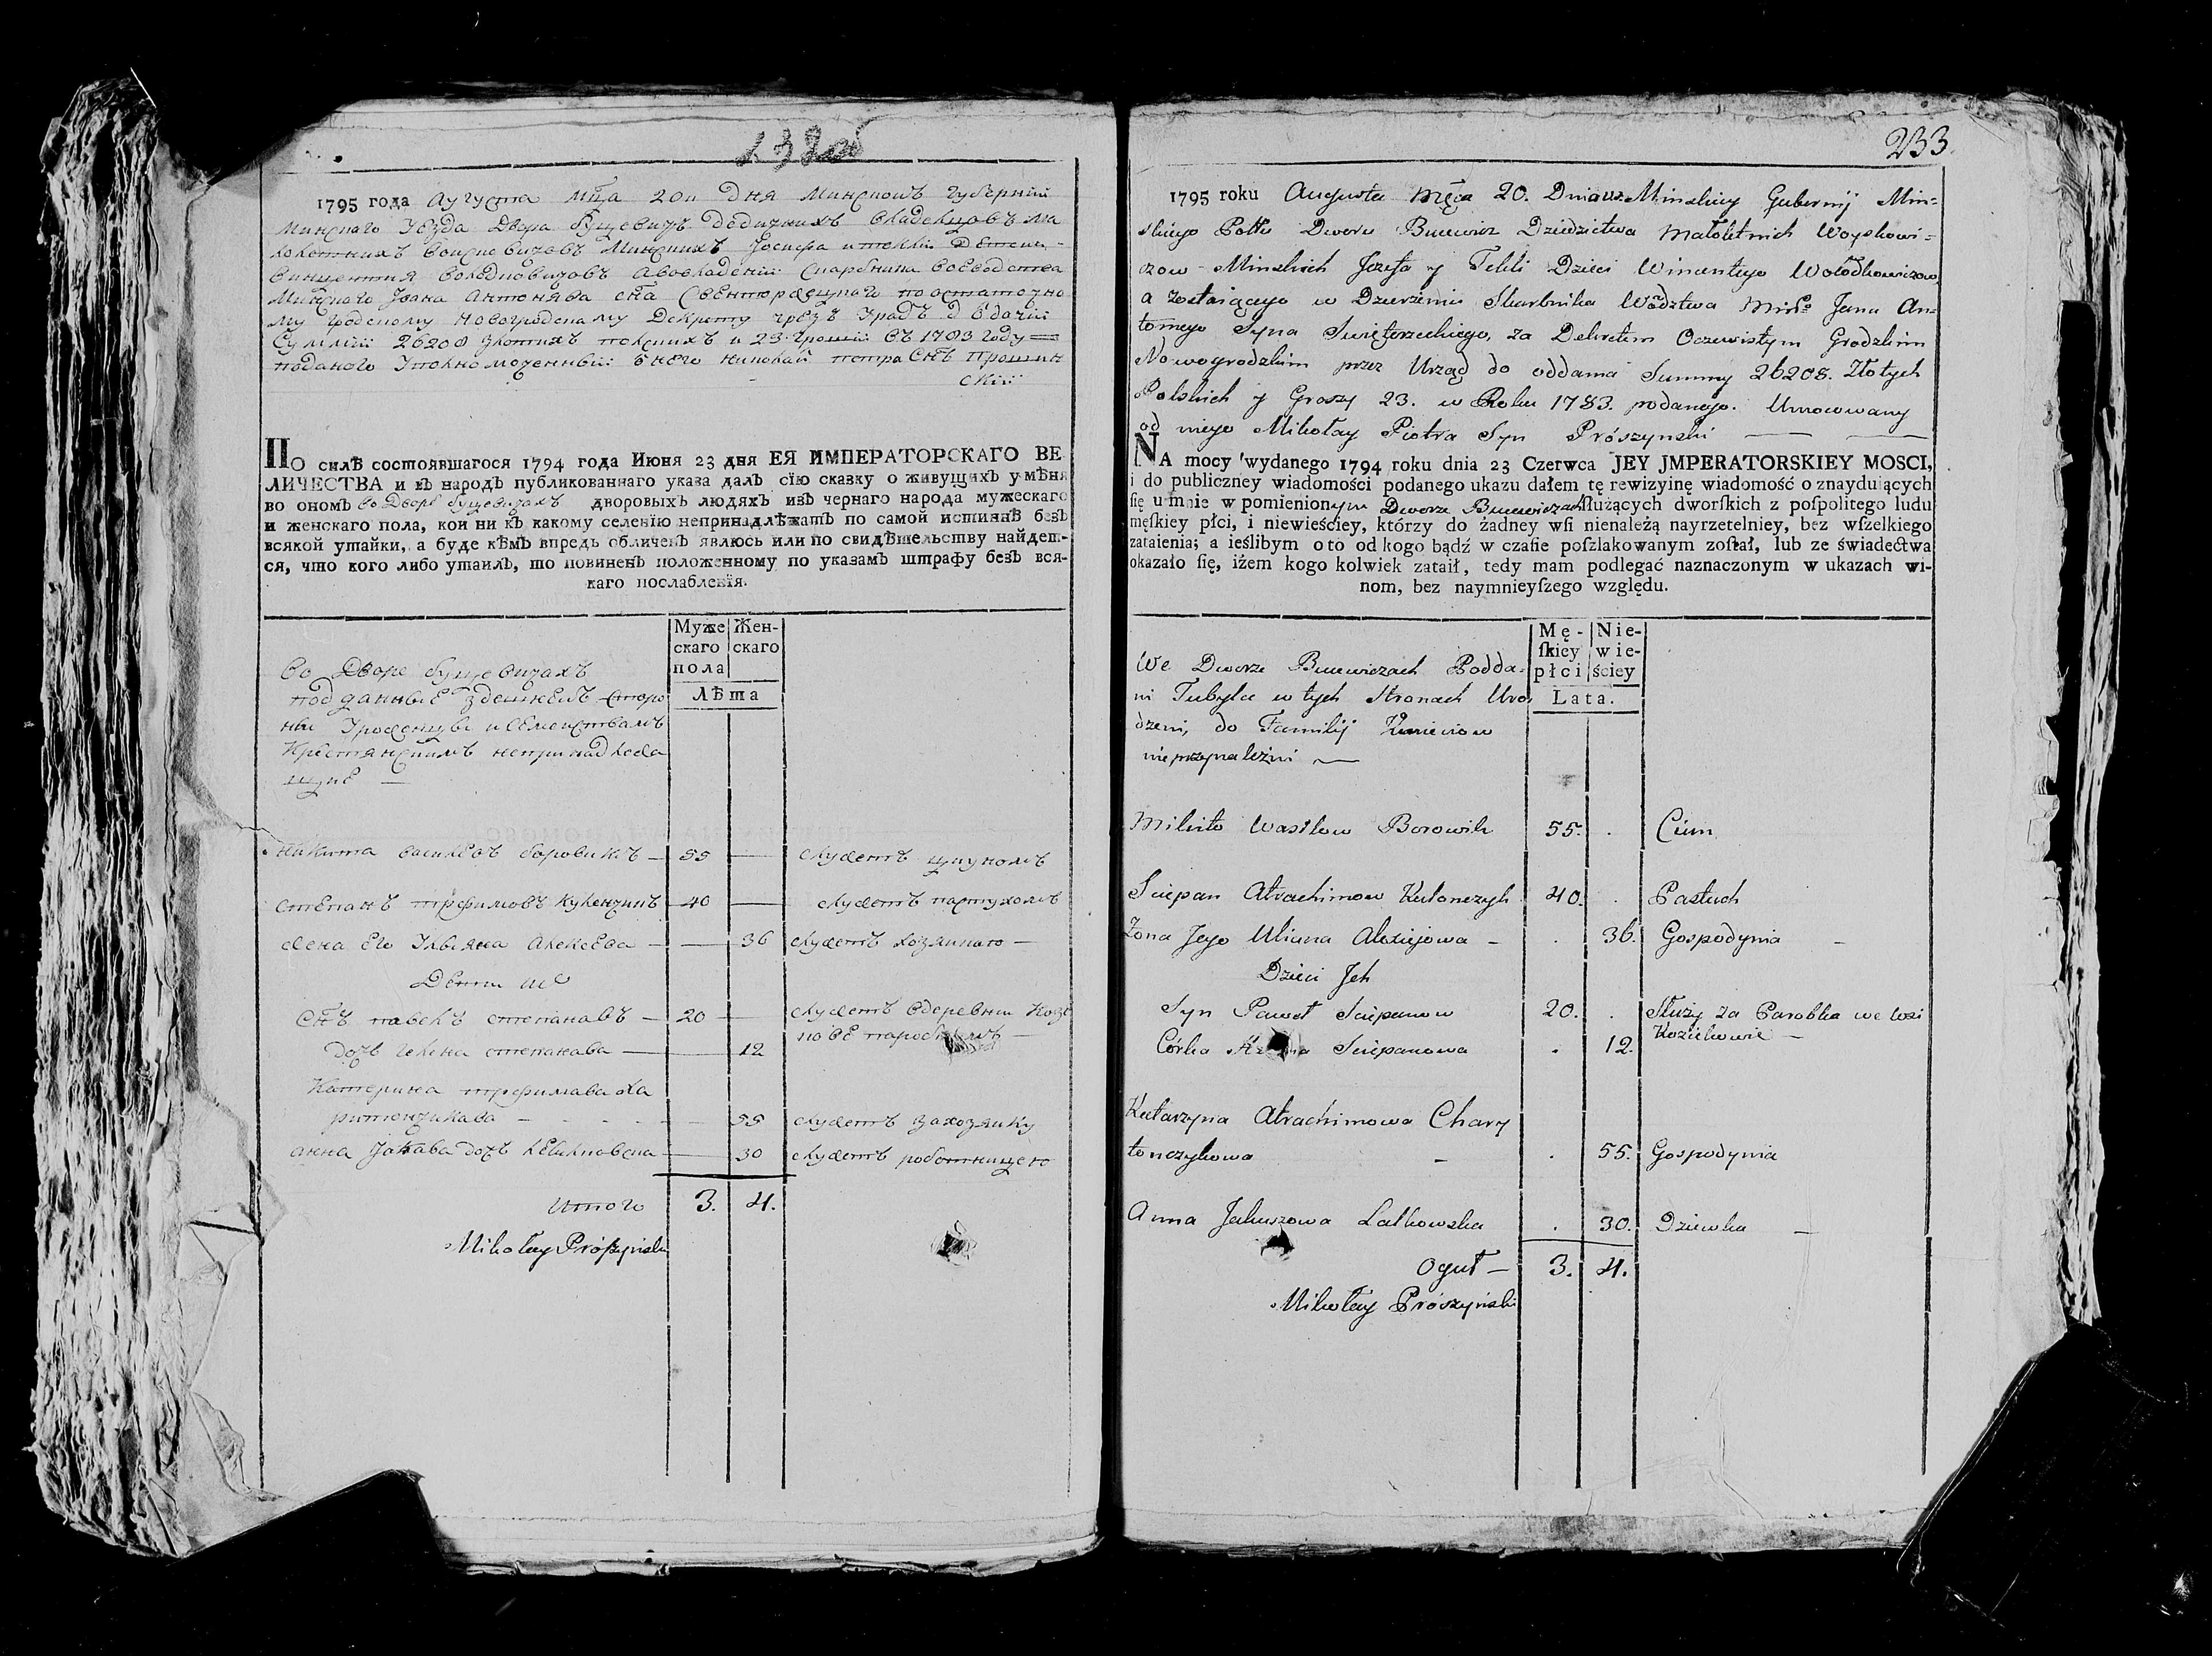 1795 года Августа Мца 20п дня Минской Губерніи
Минскаго Уезда Двора Буцевичъ Дедичнихъ Владелцовъ ма
лолетнихъ Воиско вичовъ Минскихъ Іосифа и теклі Детеи
Винцентия Володковичовъ авовладении Скарбника Воеводства
Минскаго Іоана Антонява сна Свенторжецкаго по остаточно
му Гродскому Новогродскаму Декрету чрезъ Урадъ
Суммы 26208 злотихъ полскихъ и 23 гроши въ 1783 году
поданого Уполномоченный неего николай петра Снъ Прошин
скии
ПО силѣ состоявшагося 1794 года Июня 23 дня ЕЯ ИМПЕРАТОРСКАГО ВЕ
ЛИЧЕСТВА и въ народъ публикованнаго указа далъ сїю сказку о живущихъ у мѣня
во ономъ во Дворе буцевичахъ дворовыхъ людяхъ изъ чернаго народа мужескаго
и женскаго пола, кои ни къ какому селенїю непринадлѣжатъ по самой истиннѣ безъ
всякой утайки, а буде кѣмъ впредь обличенъ явлюсь или по свидѣтельству найдет-
ся, что кого либо утаилъ, то повиненъ положенному по указамъ штрафу безъ вся-
каго послабленїя.
Муже
скаго
пола
Жен-
скаго
Лѣта
Во Дворе буцевичахъ
подданные здешнеи сторо
ны Уроженцы и семеиствамъ
Крестянскимъ непринадлежа
щие —
никита василевъ боровикъ — 55 — служетъ цпуномъ
степанъ трофимовъ кулончикъ 40 — служетъ пастухомъ
жена его Ульяна Алексеева — — 36 служетъ хозяикаю —
Дети их
Снъ павелъ степанавъ — 20 — служетъ вдеревни Козе
кове паробкомъ —
дочъ степанава — — 12
Катерина трофимава ха
ритончикава — — 55 служетъ захозяику
анна дочъ — 30 служетъ роботницею
Итого 3. 4.
Mikołay Prószynski
233
1795 roku Augusta Męca 20. Dnia w Minskiey Gubernij Min=
skiego Pottu Dworu Bucewicz Dziedzictwa Małoletnich Woyskowi=
czow Minskich Jozefa y Tekli Dzieci Wincentego Wołodkowiczow,
a zostaiącego w Dzierzeniu Skarbnika Wodztwa Minsgo Jana An=
toniego Syna Swiętorzeckiego, za Dekretem Oczewistym Grodzkim
Nowogrodzkim przez Urząd do oddania Summy 26208. Złotych
Polskich y Groszy 23. w Roku 1783. podanego. Umocowany
od niego Mikołay Piotra Syn Prószynski —
NA mocy wydanego 1794 roku dnia 23 Czerwca JEY JMPERATORSKIEY MOSCI,
i do publiczney wiadomości podanego ukazu dałem tę rewizyinę wiadomość o znayduiących
ſię u mnie w pomienionym Dworze Bucewiczach ſłużących dworſkich z poſpolitego ludu
męſkiey płci, i niewieściey, którzy do żadney wſi nienależą nayrzetelniey, bez wſzelkiego
zataienia; a ieślibym oto od kogo bądź w czaſie poſzlakowanym zoſtał, lub ze świadectwa
okazało ſię, iżem kogo kolwiek zataił, tedy mam podlegać naznaczonym w ukazach wi-
nom, bez naymnieyſzego względu.
Mę-
ſkiey
płci
Nie-
wie-
ściey
Lata.
We Dworze Bucewiczach Podda-
ni Tubylce w tych Stronach Uro
dzeni, do Familij Kmieciow
nieprzynależni —
Mikito Wasilow Borowik 55. . Ciun
Sciepan Atrachimow Kulonczyk 40. . Pastuch
Żona Jego Uliana Alexiejowa — . 36. Gospodynia —
Dzieci Jch
Syn Paweł Sciepanow 20. . Służy za Parobka we Wsi
Koziekowie —
Córka Sciepanowa . 12.
Katarzyna Atrachimowa Chary
tonczykowa — . 55. Gospodynia
Anna Jakuszowa Lalkowska . 30. Dziewka —
Oguł — 3. 4.
Mikołay Prószynski